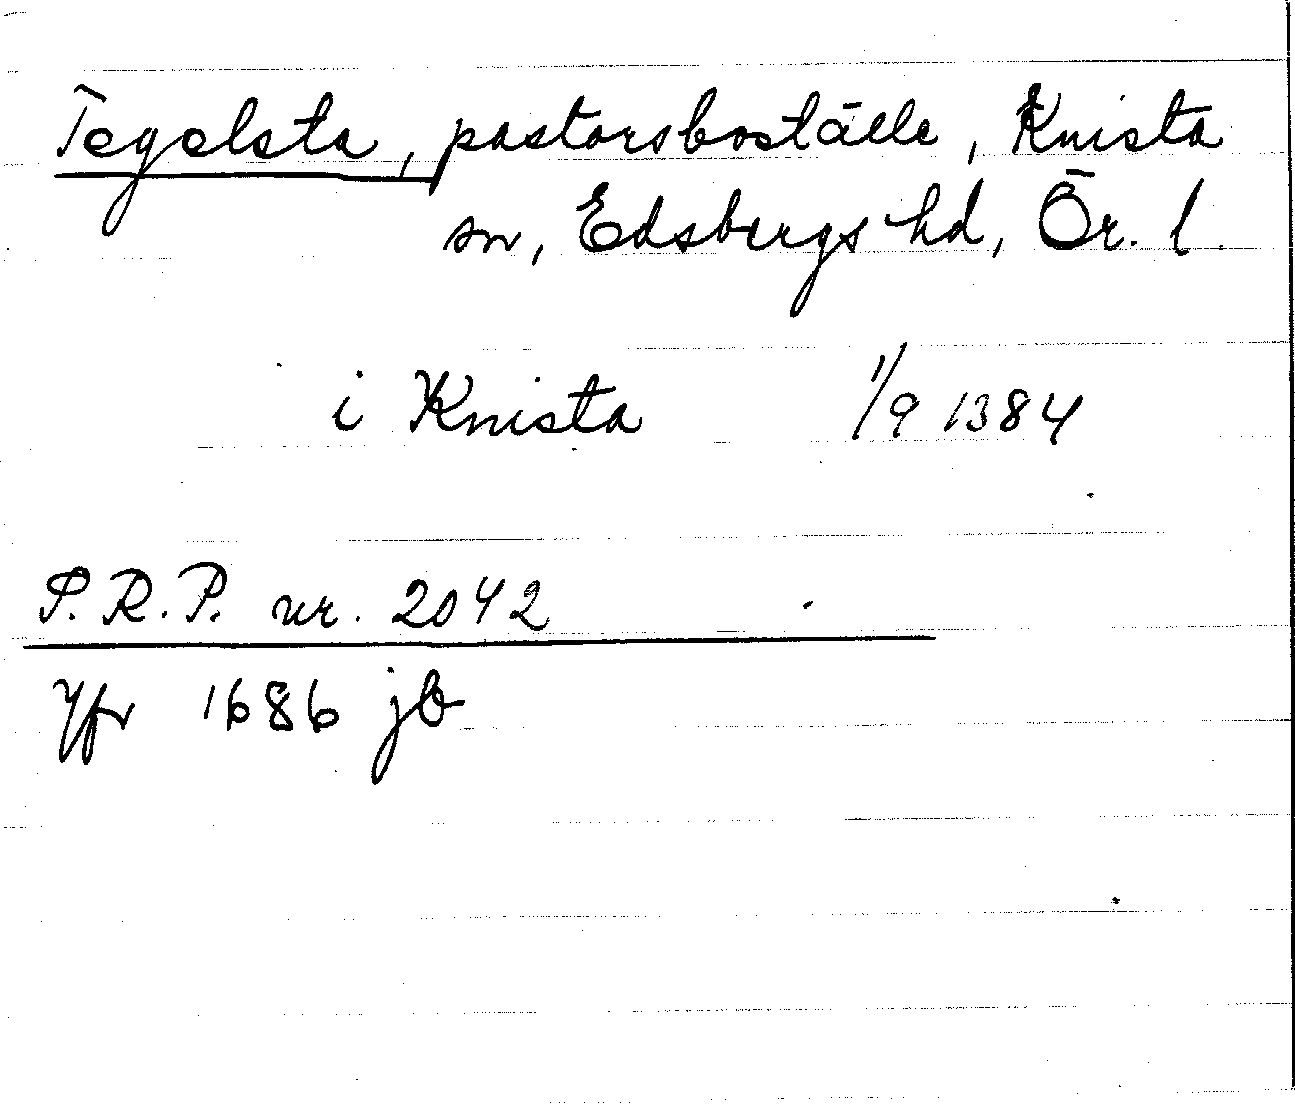 Tegelsta, pastorsboställe, Knista
sn, Edsbergs hd, Ör. l.
i Knista 1/9 1384
S.R.P. nr. 2042
Jfr 1686 jb